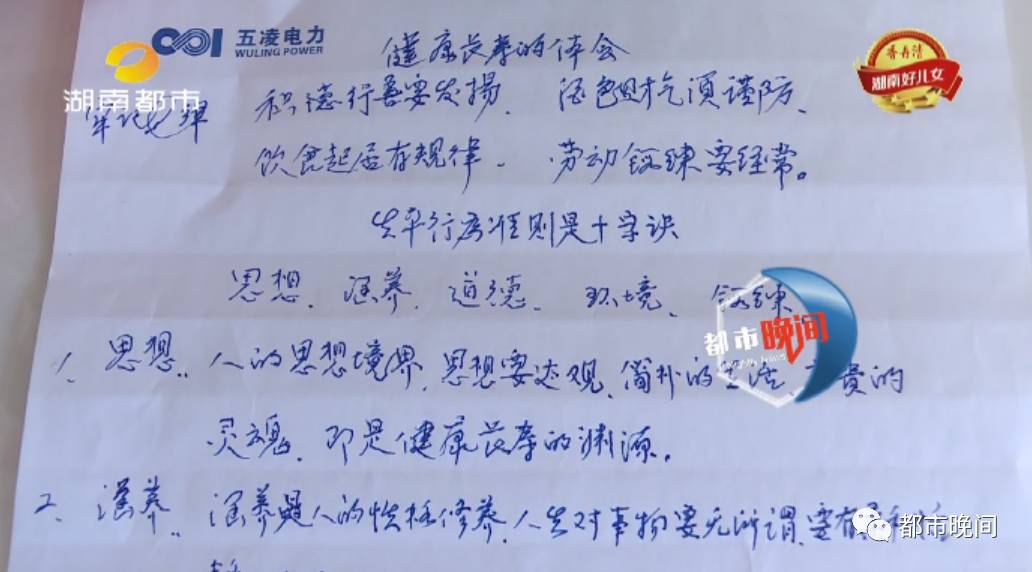 五凌电力
WULING POWER
健康长寿的体会
湖南都市
香弄清
湖南好儿女
牢记
积德行善要发揚、酒色财气须谨防、
饮食起居有规律、劳动锻练要经常。
生平行为准则是十字诀
思想、涵养、道德、环境、锻练
都市晚间
1、思想：人的思想境界、思想要达观、简朴的生活 贵的
灵魂、即是健康长寿的渊源。
2、涵养：涵养是人的性格修养、人生对事物要无所谓、要有
都市晚间